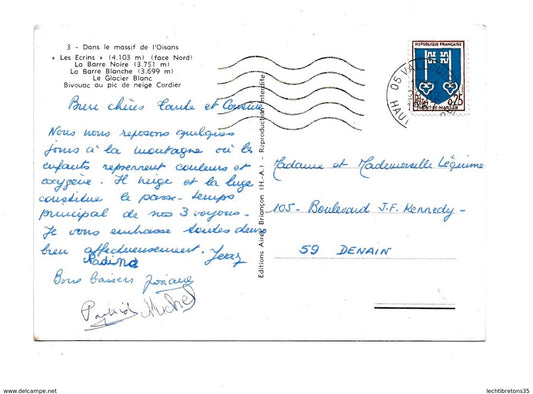 3 - Dans le massif de l'Oisans
« Les Ecrins » (4.103 m) (face Nord)
La Barre Noire (3.751 m)
La Barre Blanche (3.699 m)
Le Glacier Blanc
Bivouac au pic de neige Cordier
Bien chères Tante et Cousine
Nous nous reposons quelques
jours à la montagne où les
enfants reprennent couleurs et
oxygène. Il neige et la luge
constitue le passe-temps
principal de nos 3 voyous.
Je vous embrasse toutes deux
bien affectueusement.
Bons baisers
Patrick Michel
Editions Aires Briançon (H.-A.) - Reproduction interdite
REPUBLIQUE FRANÇAISE
0,25
MONT-DE-MARSAN
05
HAUTES
Madame et Mademoiselle Léquime
105 - Boulevard J.F. Kennedy -
59 DENAIN
www.delcampe.net
lechtibretons35